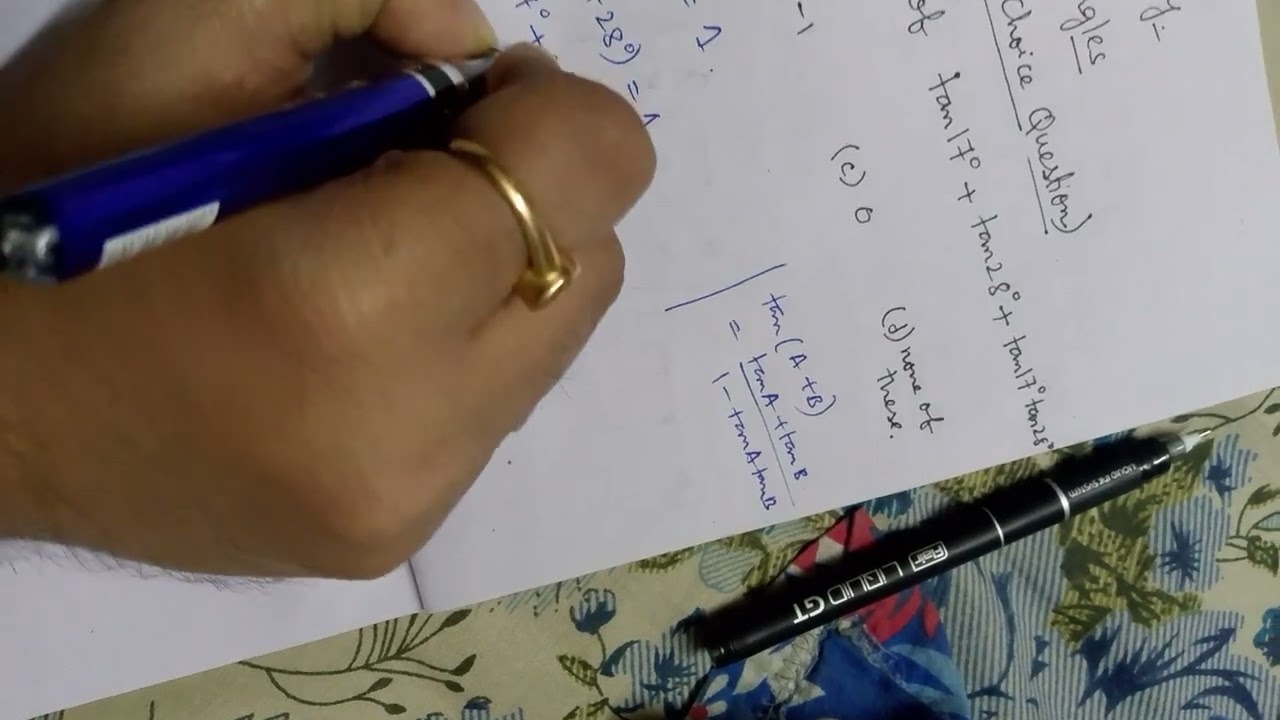 y:-
gles
choice Question)
of tan17° + tan28° + tan17° tan28°
-1 (c) 0 (d) none of
these.
= 1.
tan(A+B)
= tanA + tanB
1 - tanA tanB
+28°) = 1
7° +
Flair LIQUID GT
LIQUID INK SYSTEM